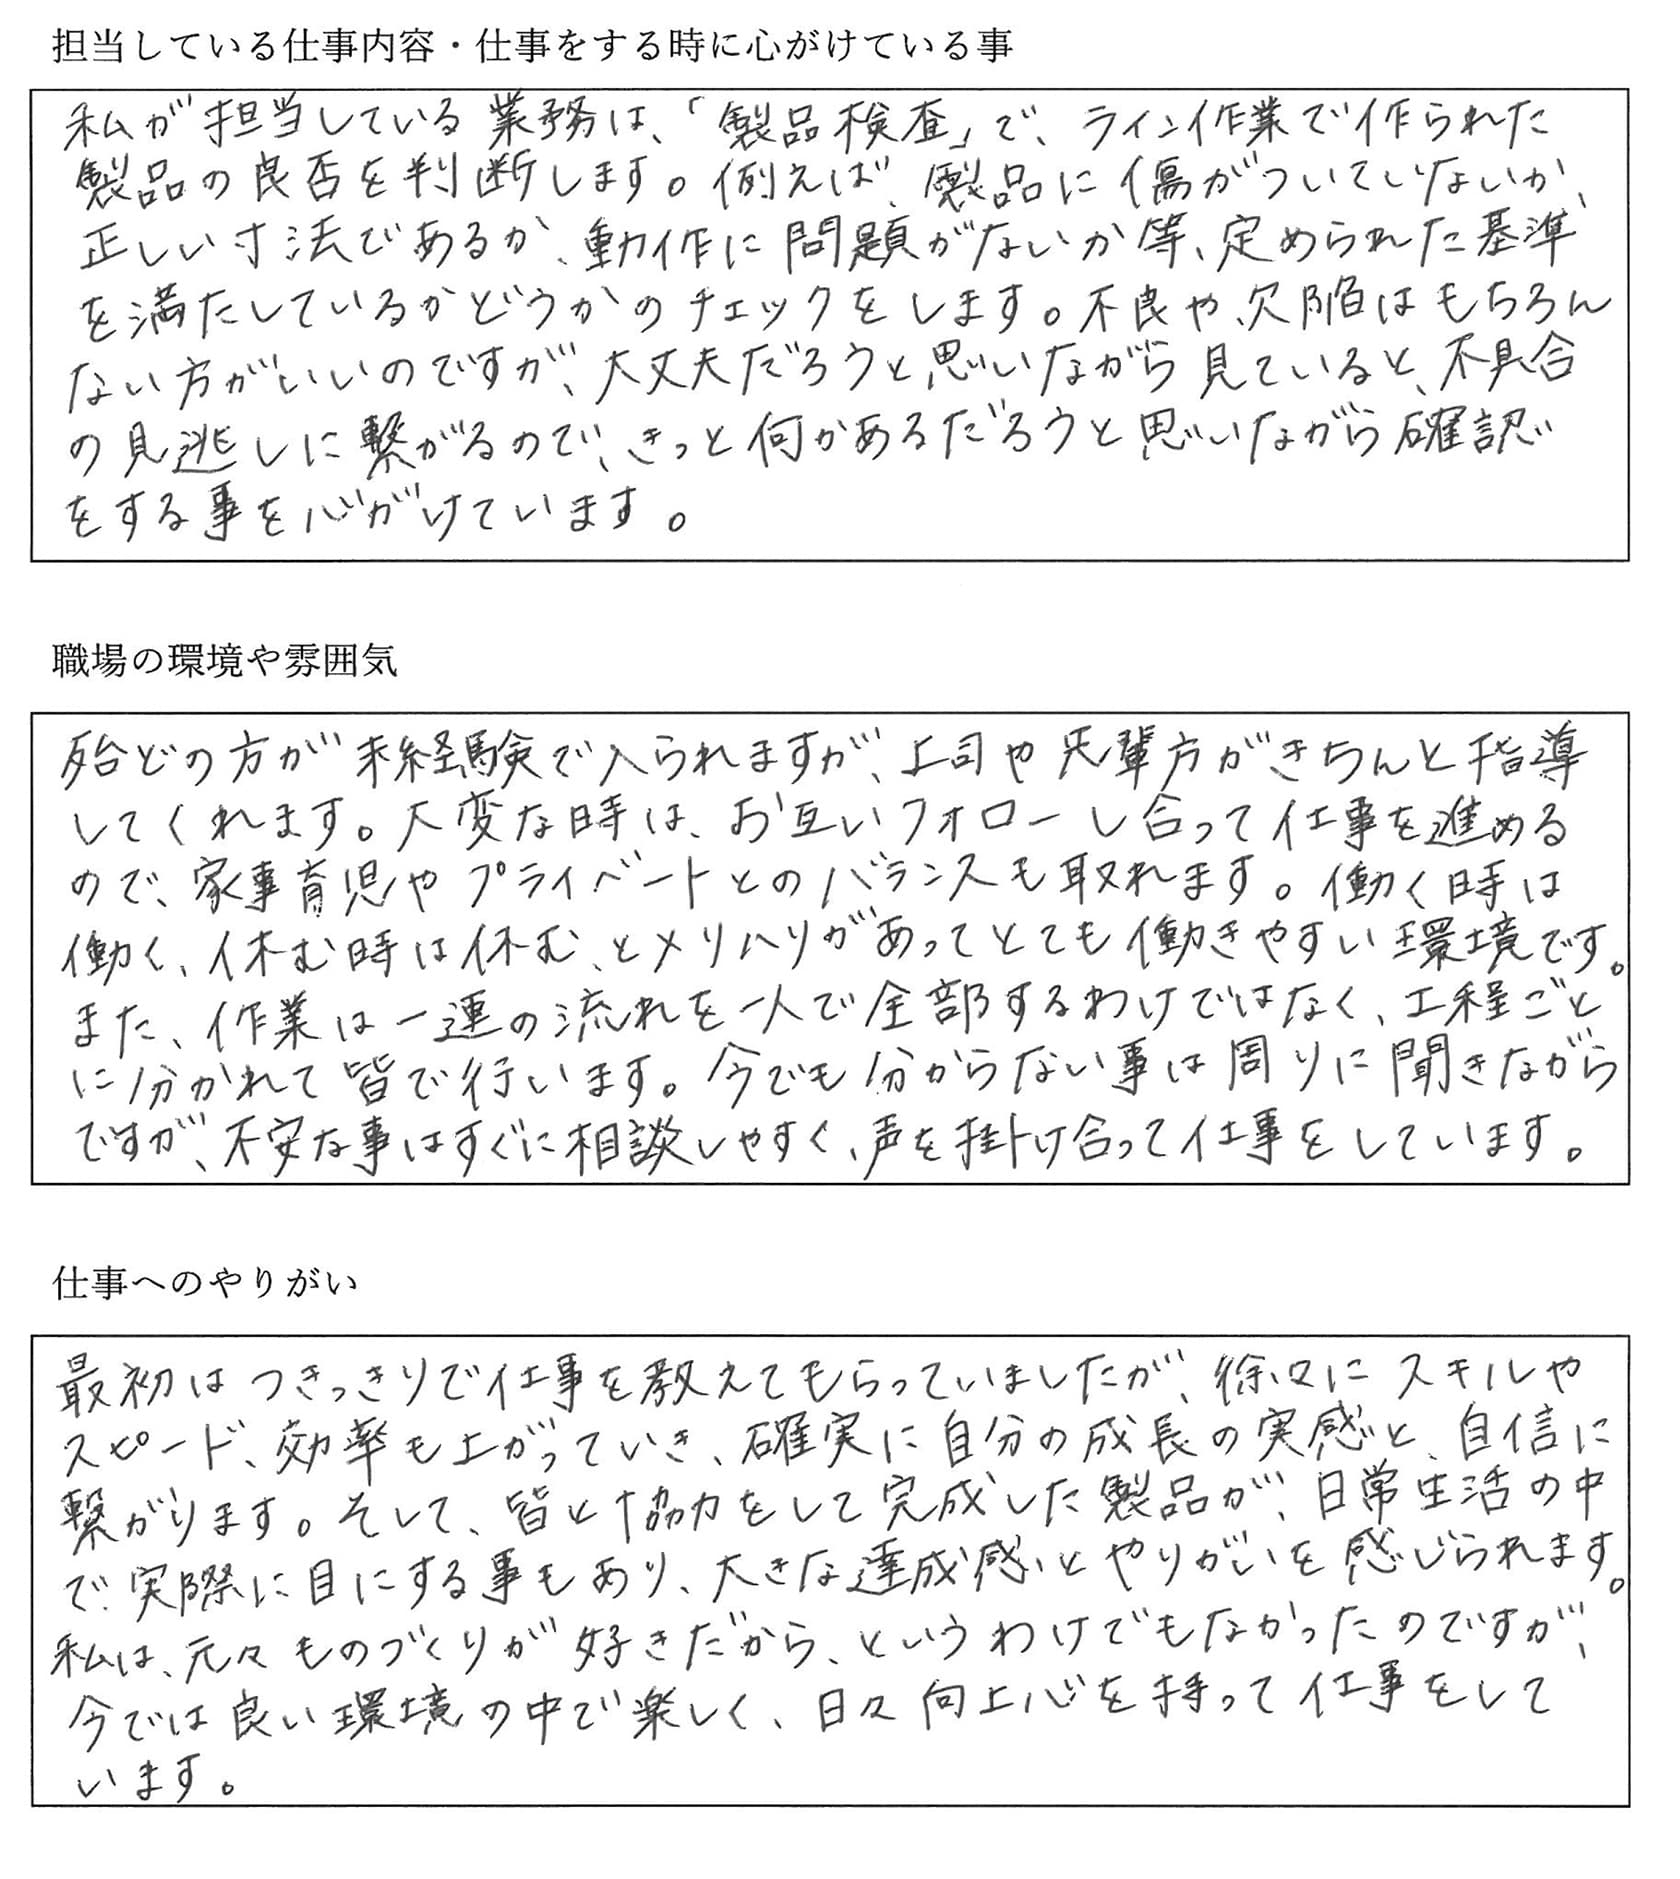 担当している仕事内容・仕事をする時に心がけている事
私が担当している業務は、「製品検査」で、ライン作業で作られた
製品の良否を判断します。例えば、製品に傷がついていないか、
正しい寸法であるか、動作に問題がないか等、定められた基準
を満たしているかどうかのチェックをします。不良や欠陥はもちろん
ない方がいいのですが、大丈夫だろうと思いながら見ていると、不具合
の見逃しに繋がるので、きっと何かあるだろうと思いながら確認
をする事を心がけています。
職場の環境や雰囲気
殆どの方が未経験で入られますが、上司や先輩方がきちんと指導
してくれます。大変な時は、お互いフォローし合って仕事を進める
ので、家事育児やプライベートとのバランスも取れます。働く時は
働く、休む時は休む、とメリハリがあってとても働きやすい環境です。
また、作業は一連の流れを一人で全部するわけではなく、工程ごと
に分かれて皆で行います。今でも分からない事は周りに聞きながら
ですが、不安な事はすぐに相談しやすく、声を掛け合って仕事をしています。
仕事へのやりがい
最初はつきっきりで仕事を教えてもらっていましたが、徐々にスキルや
スピード、効率も上がっていき、確実に自分の成長の実感と、自信に
繋がります。そして、皆と協力をして完成した製品が、日常生活の中
で実際に目にする事もあり、大きな達成感とやりがいを感じられます。
私は、元々ものづくりが好きだから、というわけでもなかったのですが、
今では良い環境の中で楽しく、日々向上心を持って仕事をして
います。